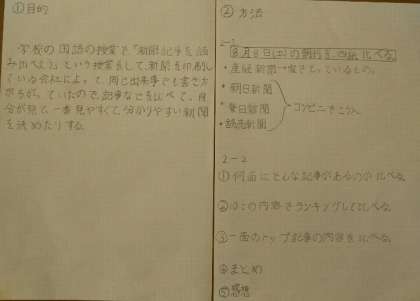 ①目的
学校の国語の授業で「新聞記事を読
み比べよう」という授業をして、新聞を印刷し
ている会社によって、同じ出来事でも書き方
がちがっていたので、記事などを比べて、自
分が見て一番見やすくて分かりやすい新聞
を決めたりする。
② 方法
2-1
8月8日(土)の朝刊を四紙比べる。
・産経新聞→家でとっているもの。
・朝日新聞
・毎日新聞
・読売新聞
コンビニでこう入。
2-2
①何面にどんな記事があるのか比べる。
②①の内容でランキングして比べる。
③一面のトップ記事の内容を比べる。
④まとめ
⑤感想